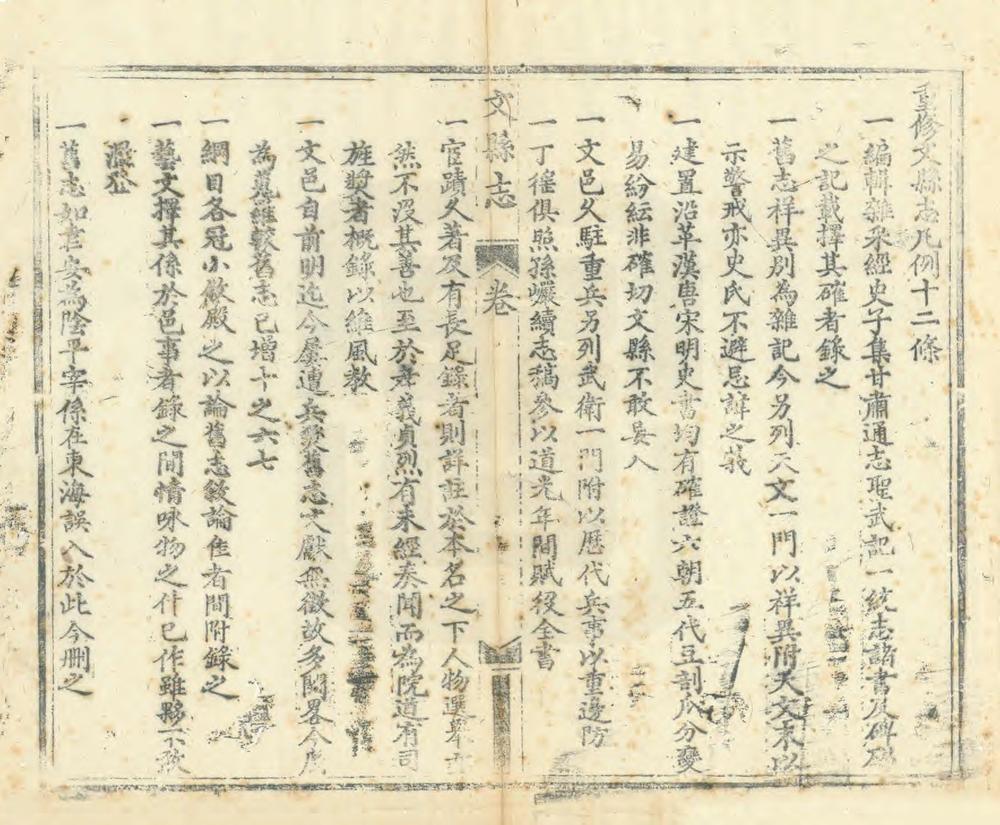 重修文縣志凡例十二條
一編輯雜采經史子集甘肅通志聖武記一統志諸書及碑碣
之記載擇其確者錄之
一舊志祥異別為雜記今另列天文一門以祥異附天文末以
示警戒亦史氏不避忌諱之義
一建置沿革漢唐宋明史書均有確證六朝五代豆剖瓜分變
易紛紜非確切文縣不敢妄入
一文邑久駐重兵另列武衛一門附以歷代兵事以重邊防
一丁徭俱照孫巘續志稿參以道光年間賦役全書
文縣志
卷
一宦蹟久著及有長足錄者則詳註於本名之下人物選舉亦
然不沒其善也至於孝義貞烈有未經奏聞而為院道有司
旌奬者概錄以維風教
一文邑自前明迄今屢遭兵燹舊志文獻無徵故多闕畧今廣
為蒐羅較舊志已增十之六七
一綱目各冠小敘殿之以論舊志敘論佳者間附錄之
一藝文擇其係於邑事者錄之閒情咏物之什已作雖夥不敢
濫登
一舊志如韋安為陰平宰係在東海誤入於此今刪之